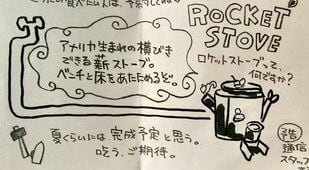 ROCKET STOVE
ロケットストーブって、
何ですか?
アメリカ生まれの横びき
できる薪ストーブ。
ベンチと床をあたためるぞ。
夏くらいには完成予定と思う。
吃う、ご期待。
通信
スタッフ